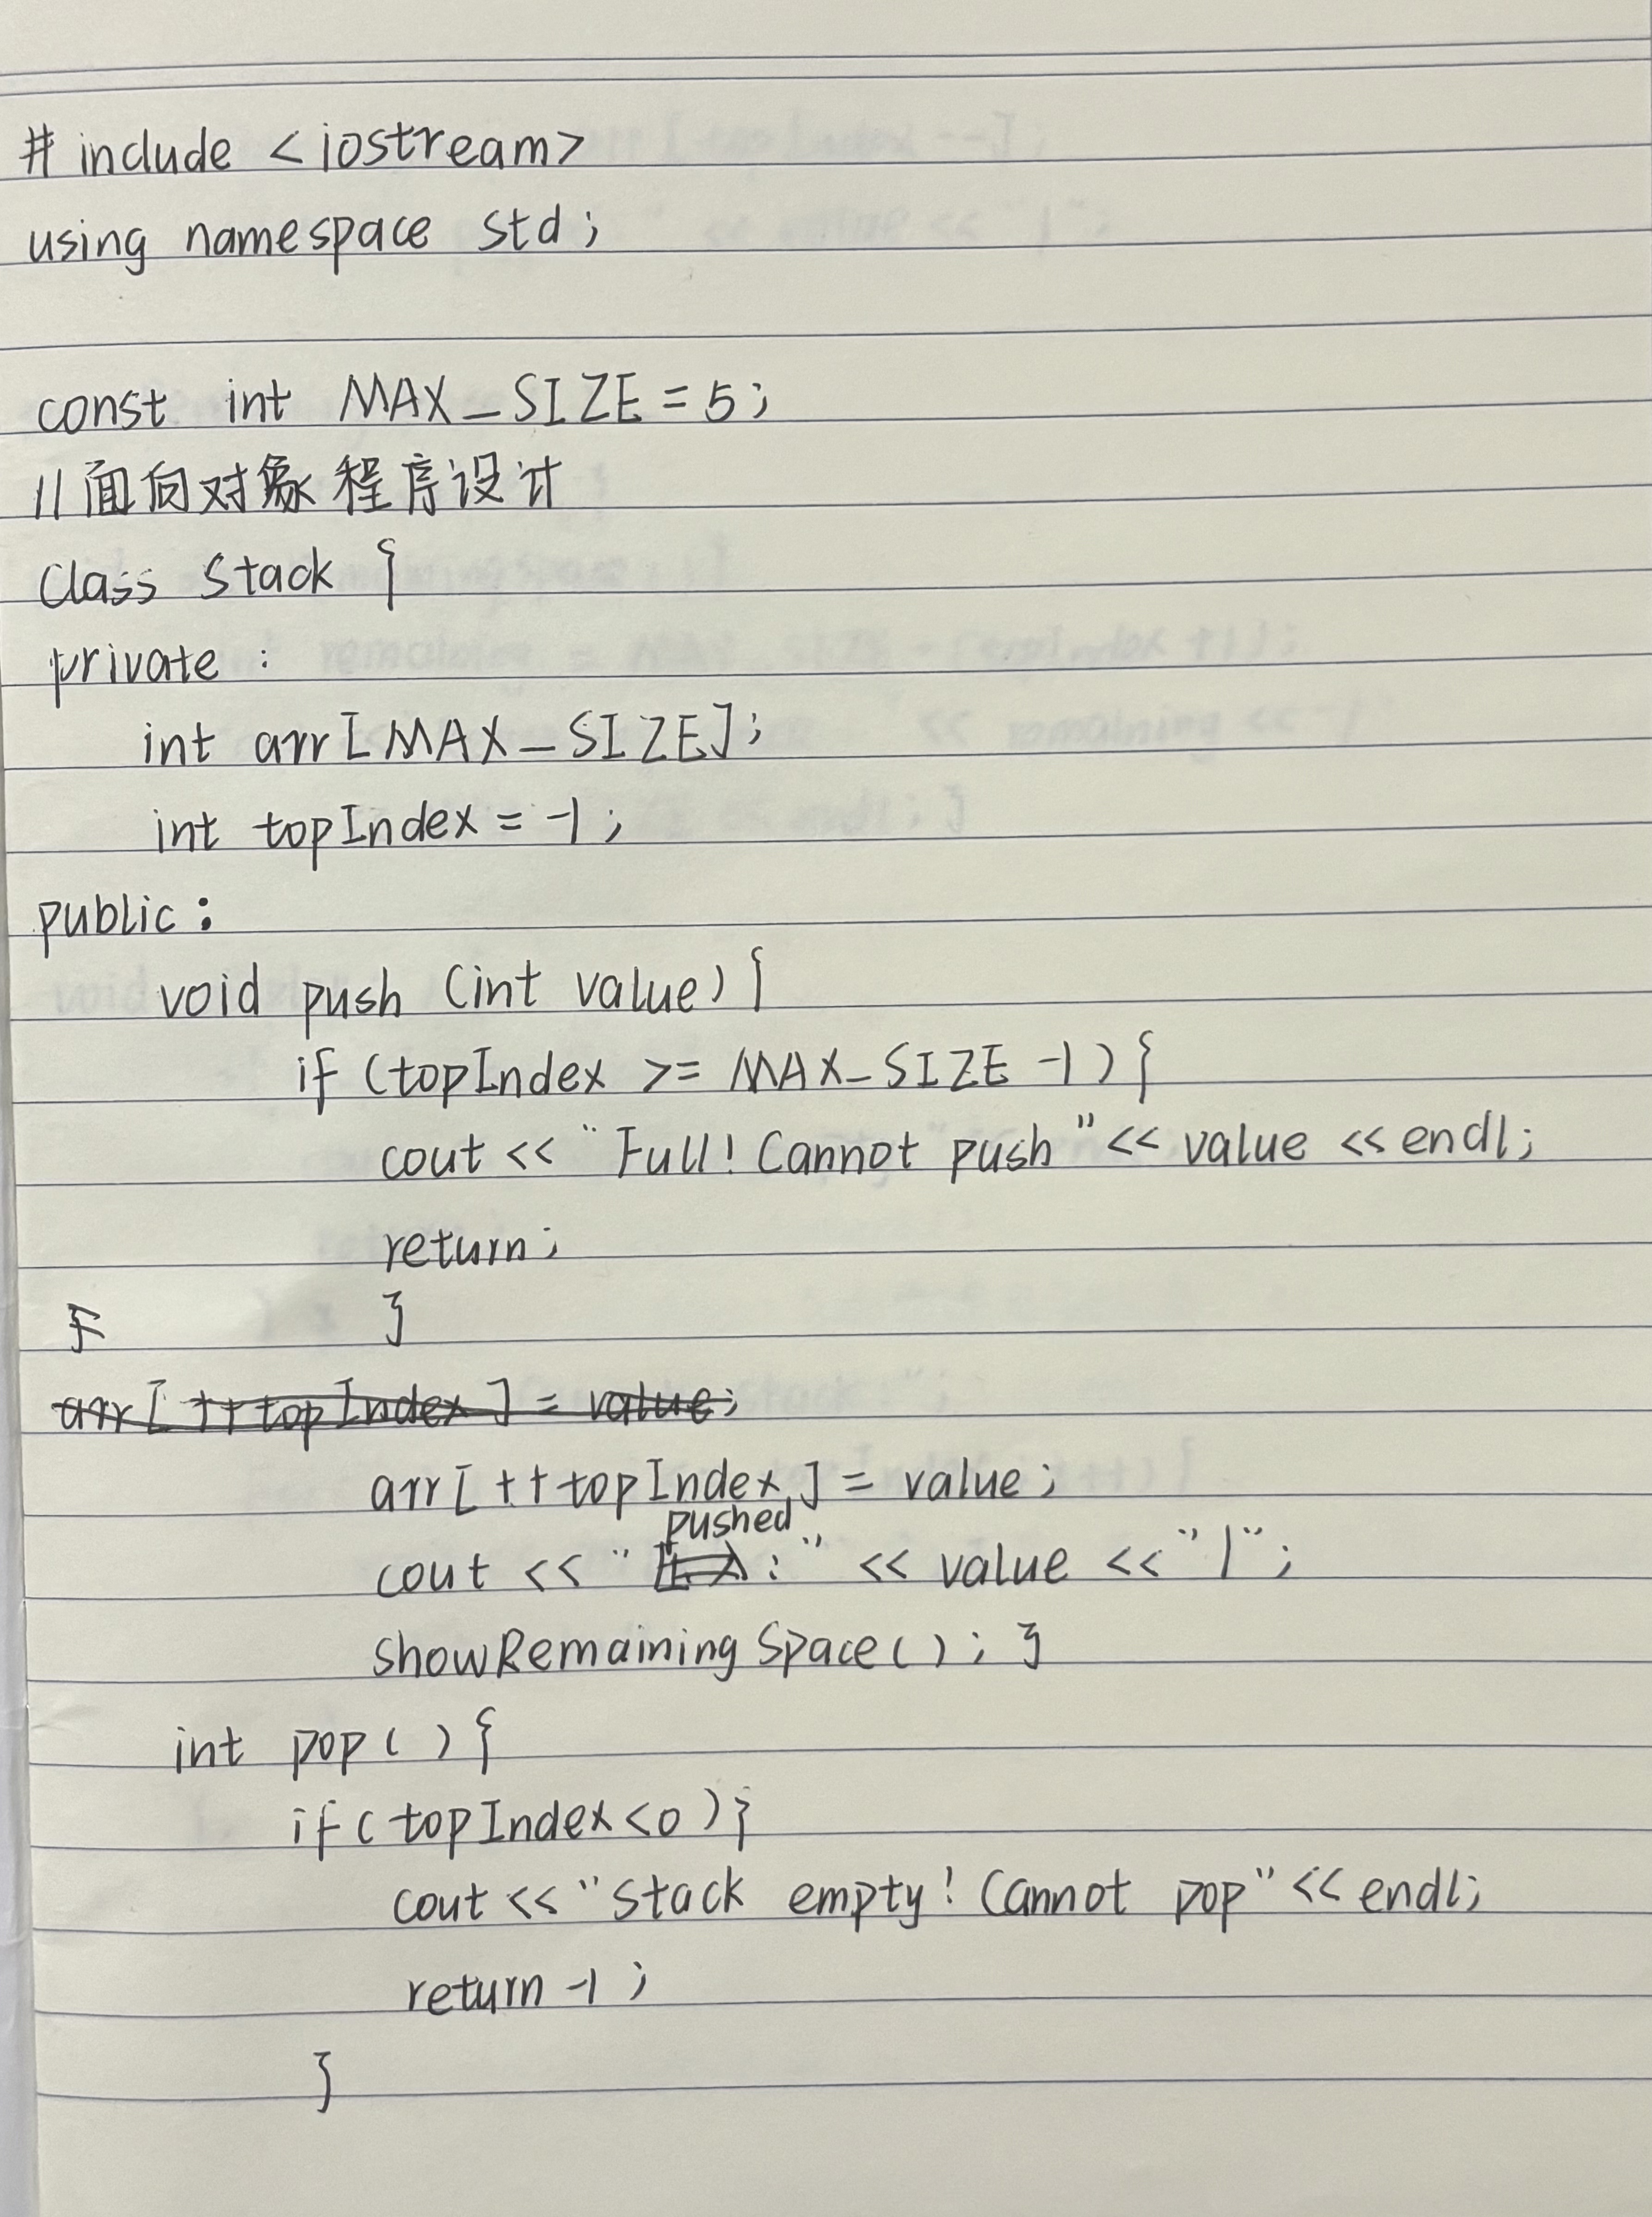 # include <iostream>
using namespace std;
const int MAX_SIZE = 5;
//面向对象程序设计
class Stack {
private :
int arr[MAX_SIZE];
int topIndex = -1;
public:
void push (int value) {
if (topIndex >= MAX_SIZE -1) {
cout << "Full! Cannot push" << value << endl;
return;
}
arr[++topIndex] = value;
arr[++topIndex] = value;
pushed
cout << " : " << value << "|";
showRemainingSpace(); }
int pop() {
if(topIndex<0)}
cout << "Stack empty! Cannot pop" << endl;
return -1;
}